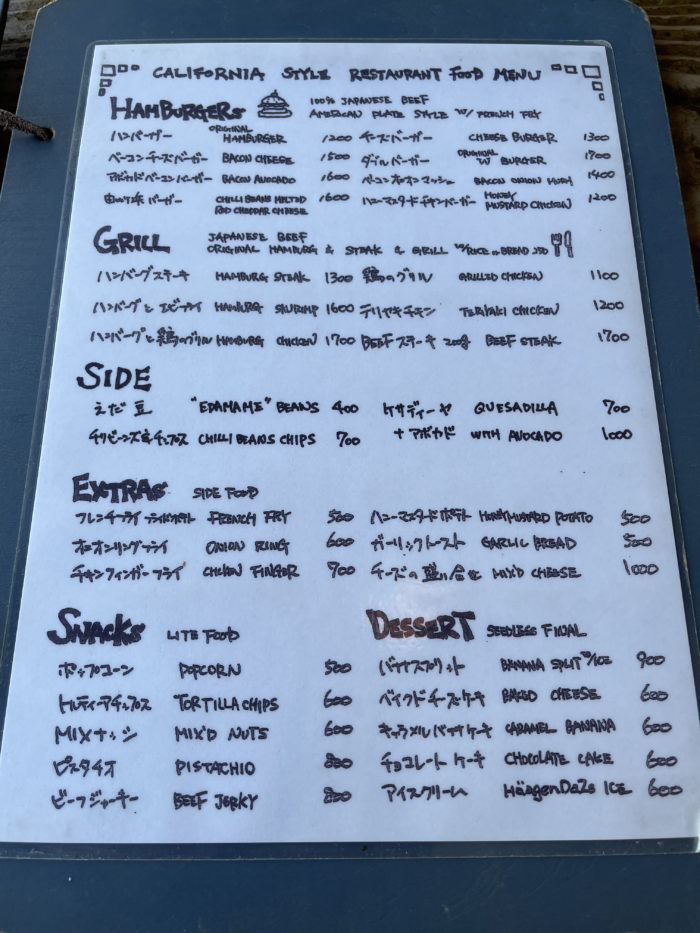 CALIFORNIA STYLE RESTAURANT FOOD MENU
HAMBURGERS 100% JAPANESE BEEF
AMERICAN PLATE STYLE W/ FRENCH FRY
ハンバーガー ORIGINAL HAMBURGER 1200 チーズバーガー CHEESE BURGER 1300
ベーコンチーズバーガー BACON CHEESE 1500 ダブルバーガー ORIGINAL W BURGER 1700
アボカドベーコンバーガー BACON AVOCADO 1600 ベーコンオニオンマッシュ BACON ONION MUSH 1400
バーガー CHILLI BEANS MELTED RED CHEDDAR CHEESE 1600 ハニーマスタードチキンバーガー HONEY MUSTARD CHICKEN 1200
GRILL JAPANESE BEEF
ORIGINAL HAMBURG & STEAK & GRILL W/RICE or BREAD
ハンバーグステーキ HAMBURG STEAK 1300 鶏のグリル GRILLED CHICKEN 1100
ハンバーグとエビフライ HAMBURG SHURIMP 1600 テリヤキチキン TERIYAKI CHICKEN 1200
ハンバーグと鶏のグリル HAMBURG CHICKEN 1700 BEEFステーキ 200g BEEF STEAK 1700
SIDE
えだ豆 "EDAMAME" BEANS 400 ケサディーヤ QUESADILLA 700
チリビーンズ&チップス CHILLI BEANS CHIPS 700 +アボカド WITH AVOCADO 1000
EXTRAS SIDE FOOD
フレンチフライ フライドポテト FRENCH FRY 500 ハニーマスタードポテト HONEYMUSTARD POTATO 500
オニオンリングフライ ONION RING 600 ガーリックトースト GARLIC BREAD 500
チキンフィンガーフライ CHICKEN FINGER 700 チーズの盛り合せ MIX'D CHEESE 1000
SNACKS LITE FOOD DESSERT SEEDLESS FINAL
ポップコーン POPCORN 500 バナナスプリット BANANA SPLIT W/ICE 900
トルティーアチップス TORTILLA CHIPS 600 ベイクドチーズケーキ BAKED CHEESE 600
MIXナッツ MIX'D NUTS 600 キャラメルバナナケーキ CARAMEL BANANA 600
ピスタチオ PISTACHIO 800 チョコレートケーキ CHOCOLATE CAKE 600
ビーフジャーキー BEEF JERKY 800 アイスクリーム HäagenDaZs ICE 600